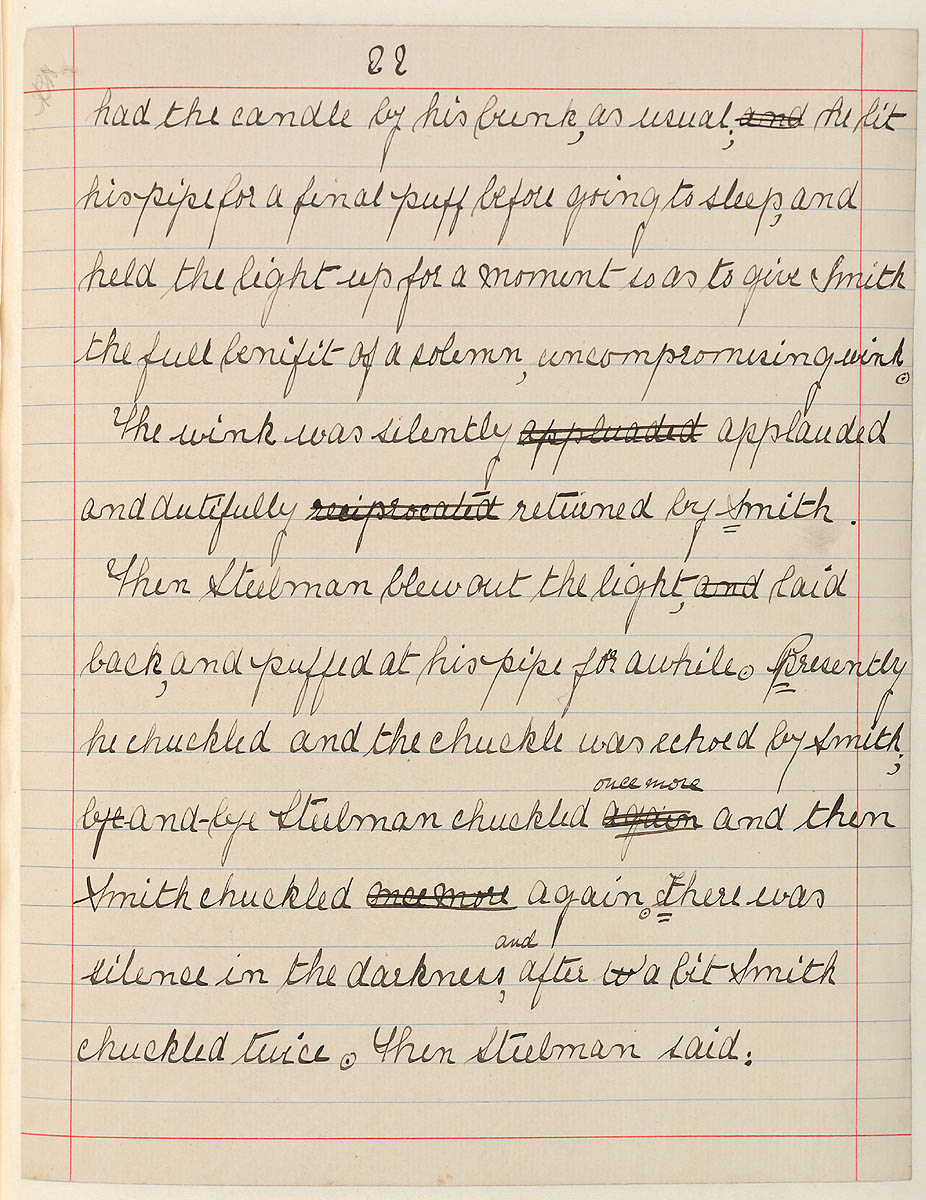 22
had the candle by his bunk, as usual; and he lit
his pipe for a final puff before going to sleep, and
held the light up for a moment so as to give Smith
the full benifit of a solemn, uncompromising wink.
The wink was silently appluaded applauded
and dutifully reciprocated returned by Smith.
Then Steelman blew out the light, and laid
back, and puffed at his pipe for awhile. Presently
he chuckled and the chuckle was echoed by Smith;
once more
bye-and-bye Steelman chuckled again and then
Smith chuckled once more again. There was
and
silence in the darkness, after a bit Smith
chuckled twice. Then Steelman said: